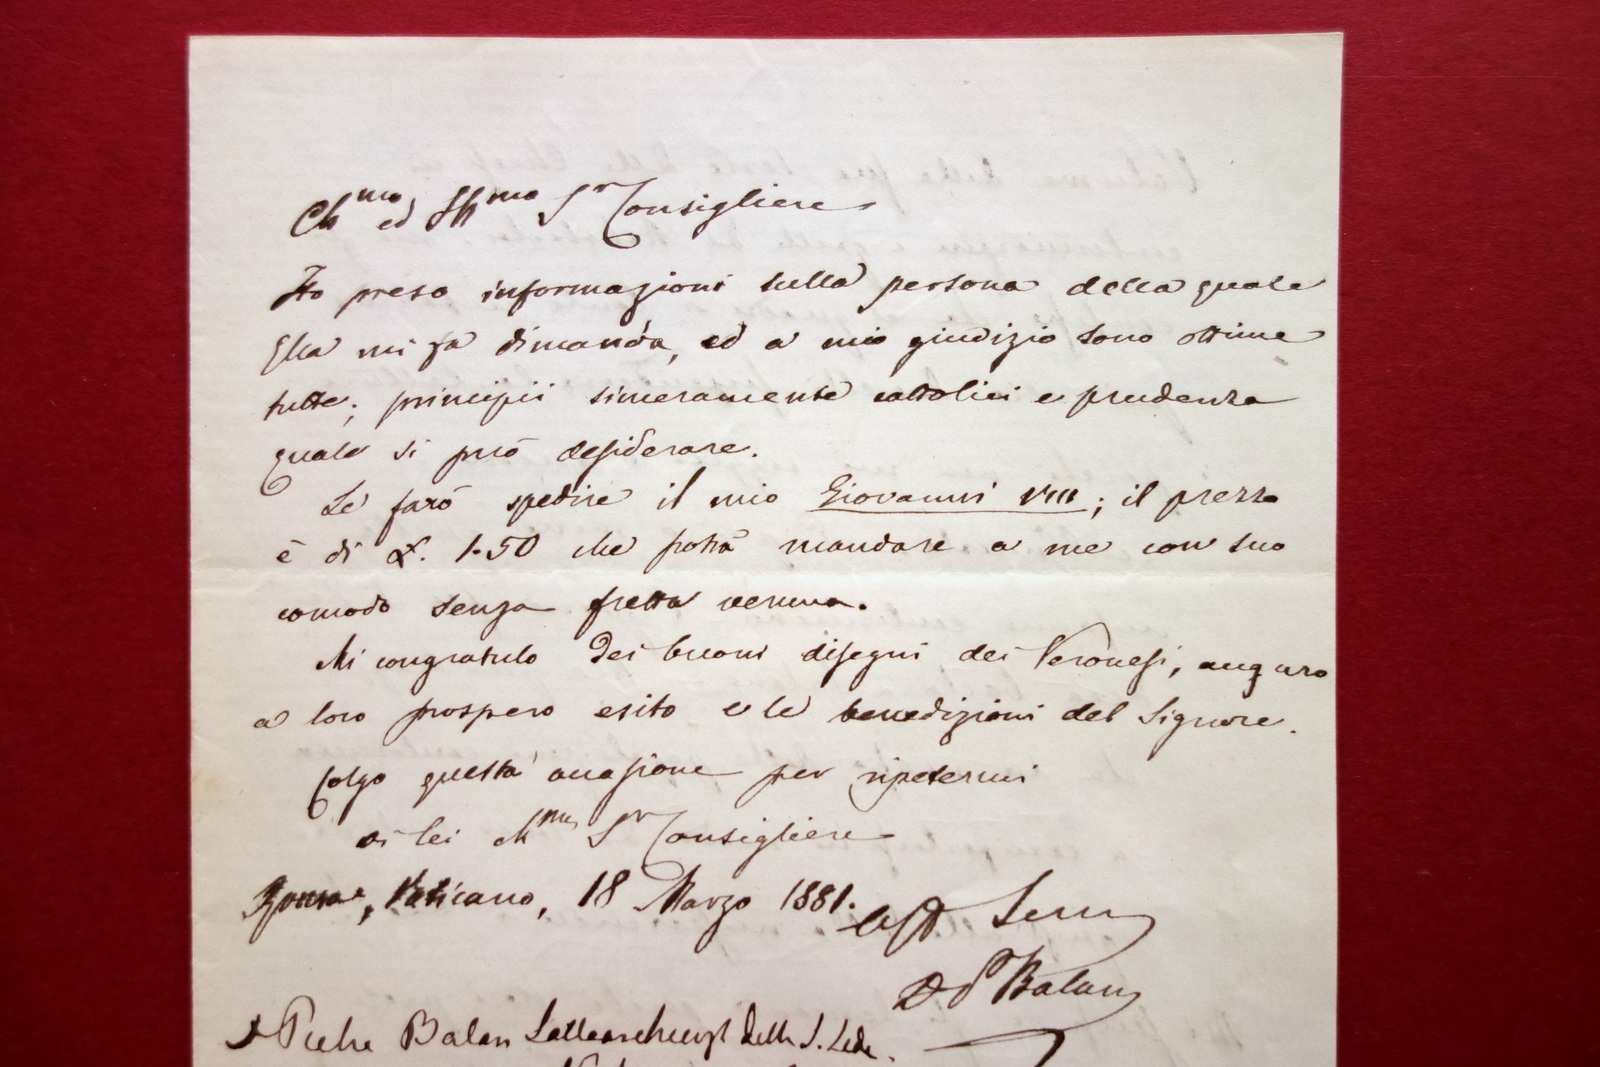 Ch^mo ed Ill^mo S^r Consigliere
Ho preso informazioni sulla persona della quale
Ella mi fa dimanda, ed a mio giudizio sono ottime
tutte; principii sinceramente cattolici e prudenza
quale si può desiderare.
Le farò spedire il mio Giovanni VIII; il prezzo
è di £. 1.50 che potrà mandare a me con suo
comodo senza fretta veruna.
Mi congratulo dei buoni disegni dei Veronesi, auguro
a loro prospero esito e le benedizioni del Signore.
Colgo questa occasione per ripetermi
di lei Ch^mo S^r Consigliere
Roma, Vaticano, 18 Marzo 1881.
Aff Serv
D P Balan
Balan
della S. Sede.